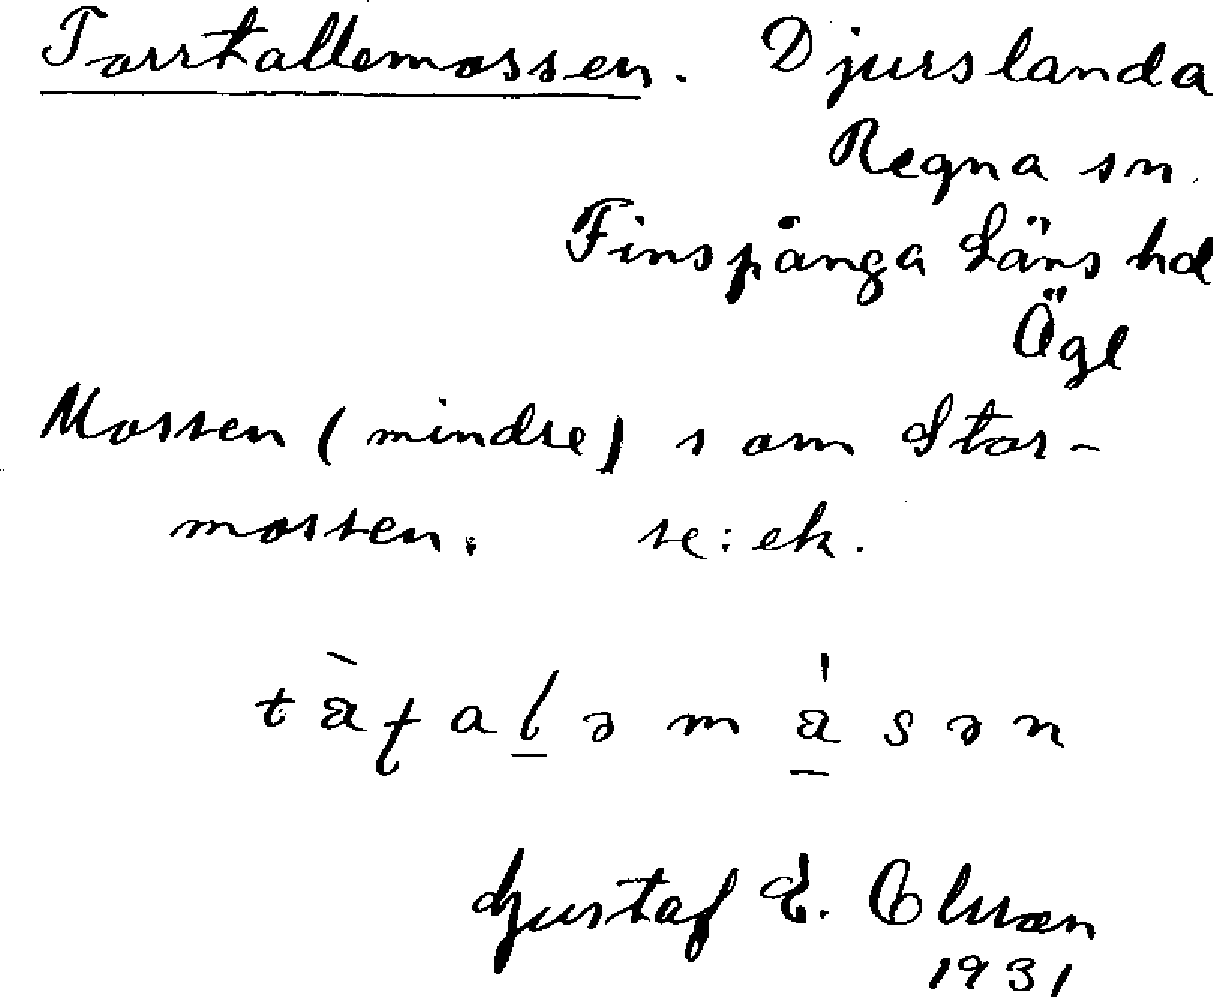 Torrtallemossen. Djurslanda
Regna sn.
Finspånga Läns hd
Ögl
Mossen (mindre) som Stor-
mossen. se: ek.
Gustaf E. Olsson
1931